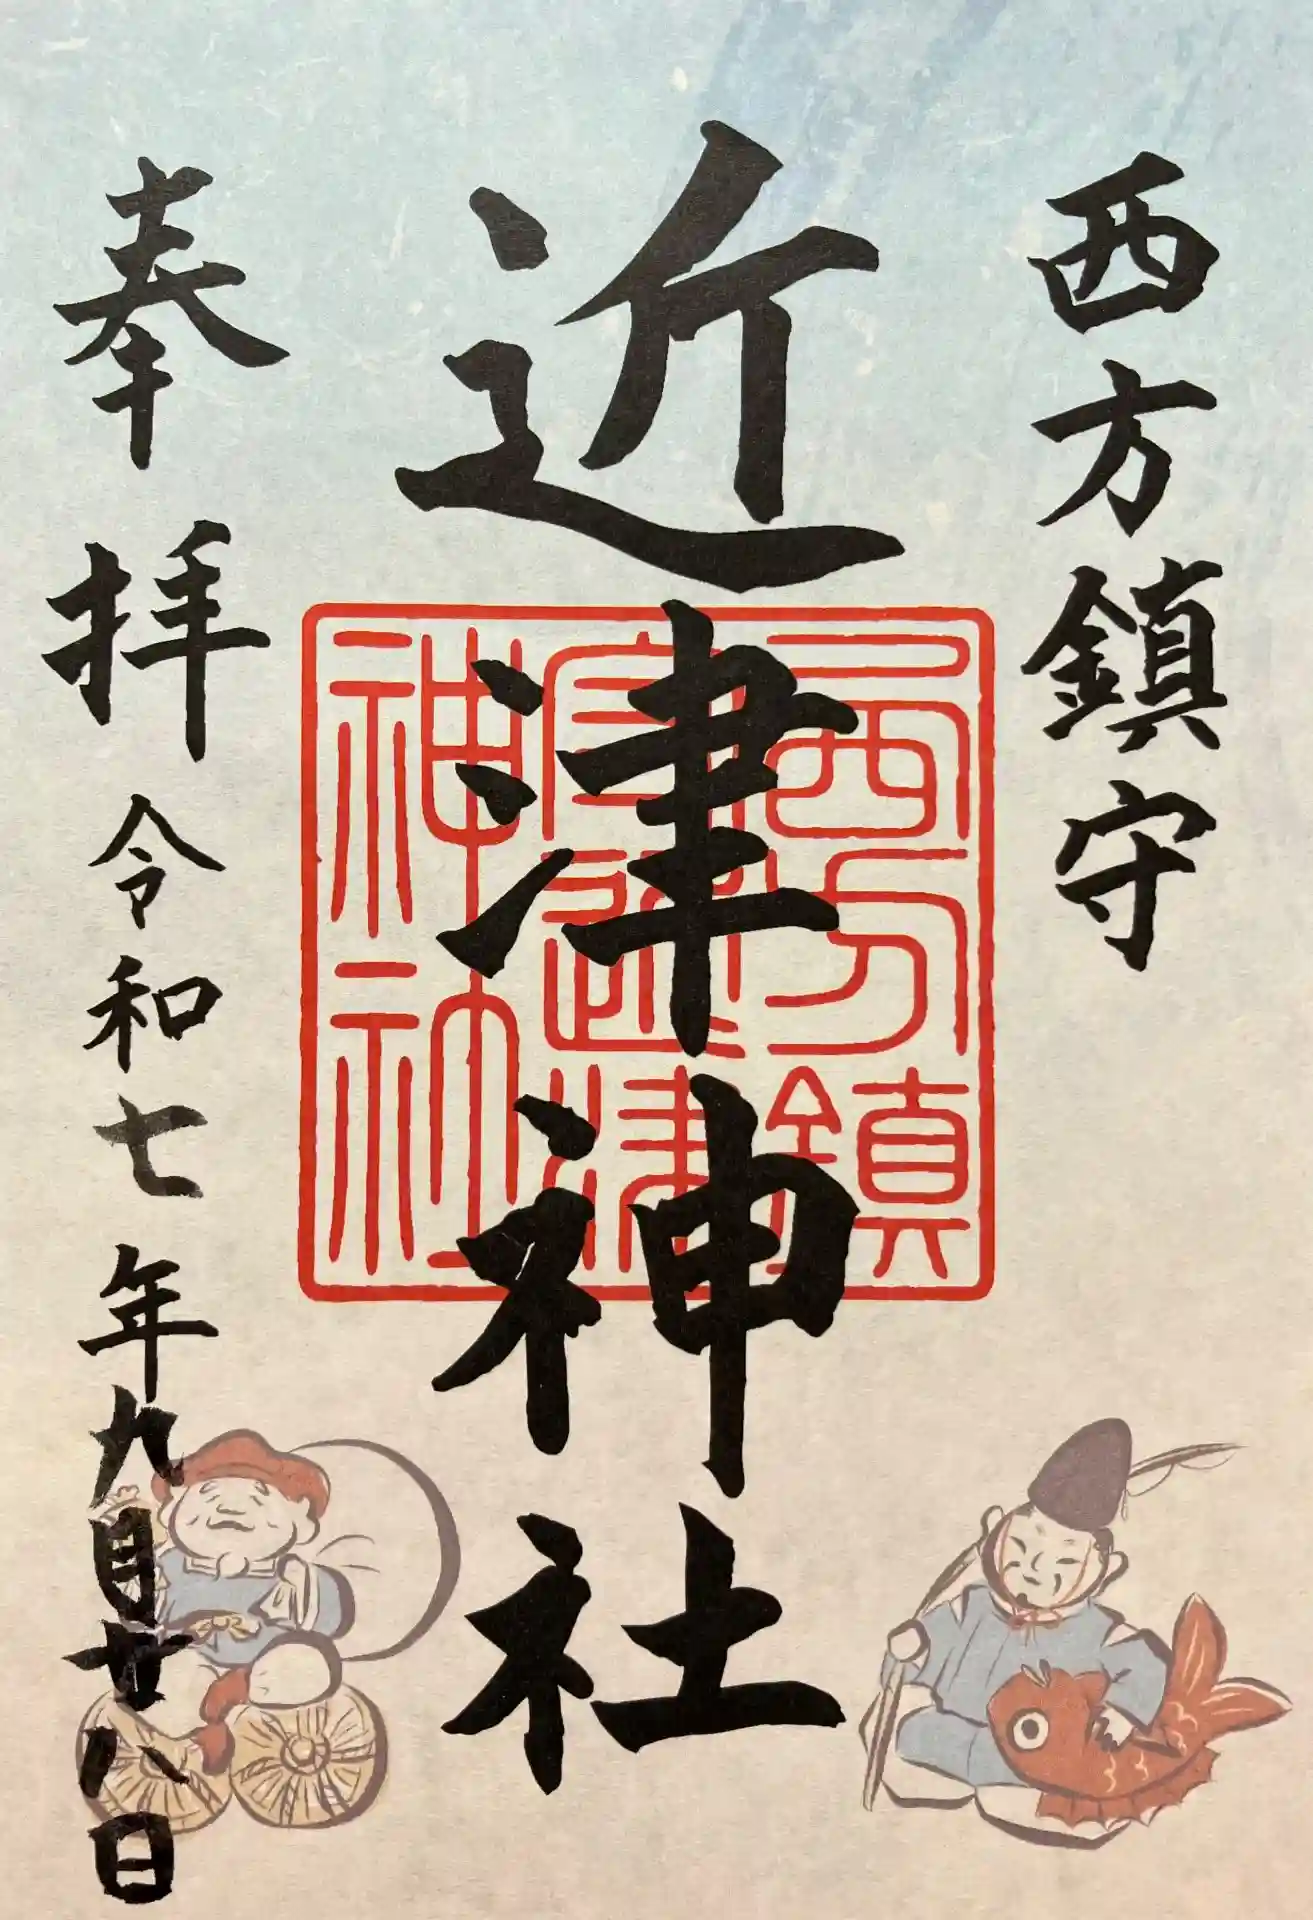 西方鎮守
近津神社
西方鎮
守近津
神社
奉拝 令和七年九月廿八日